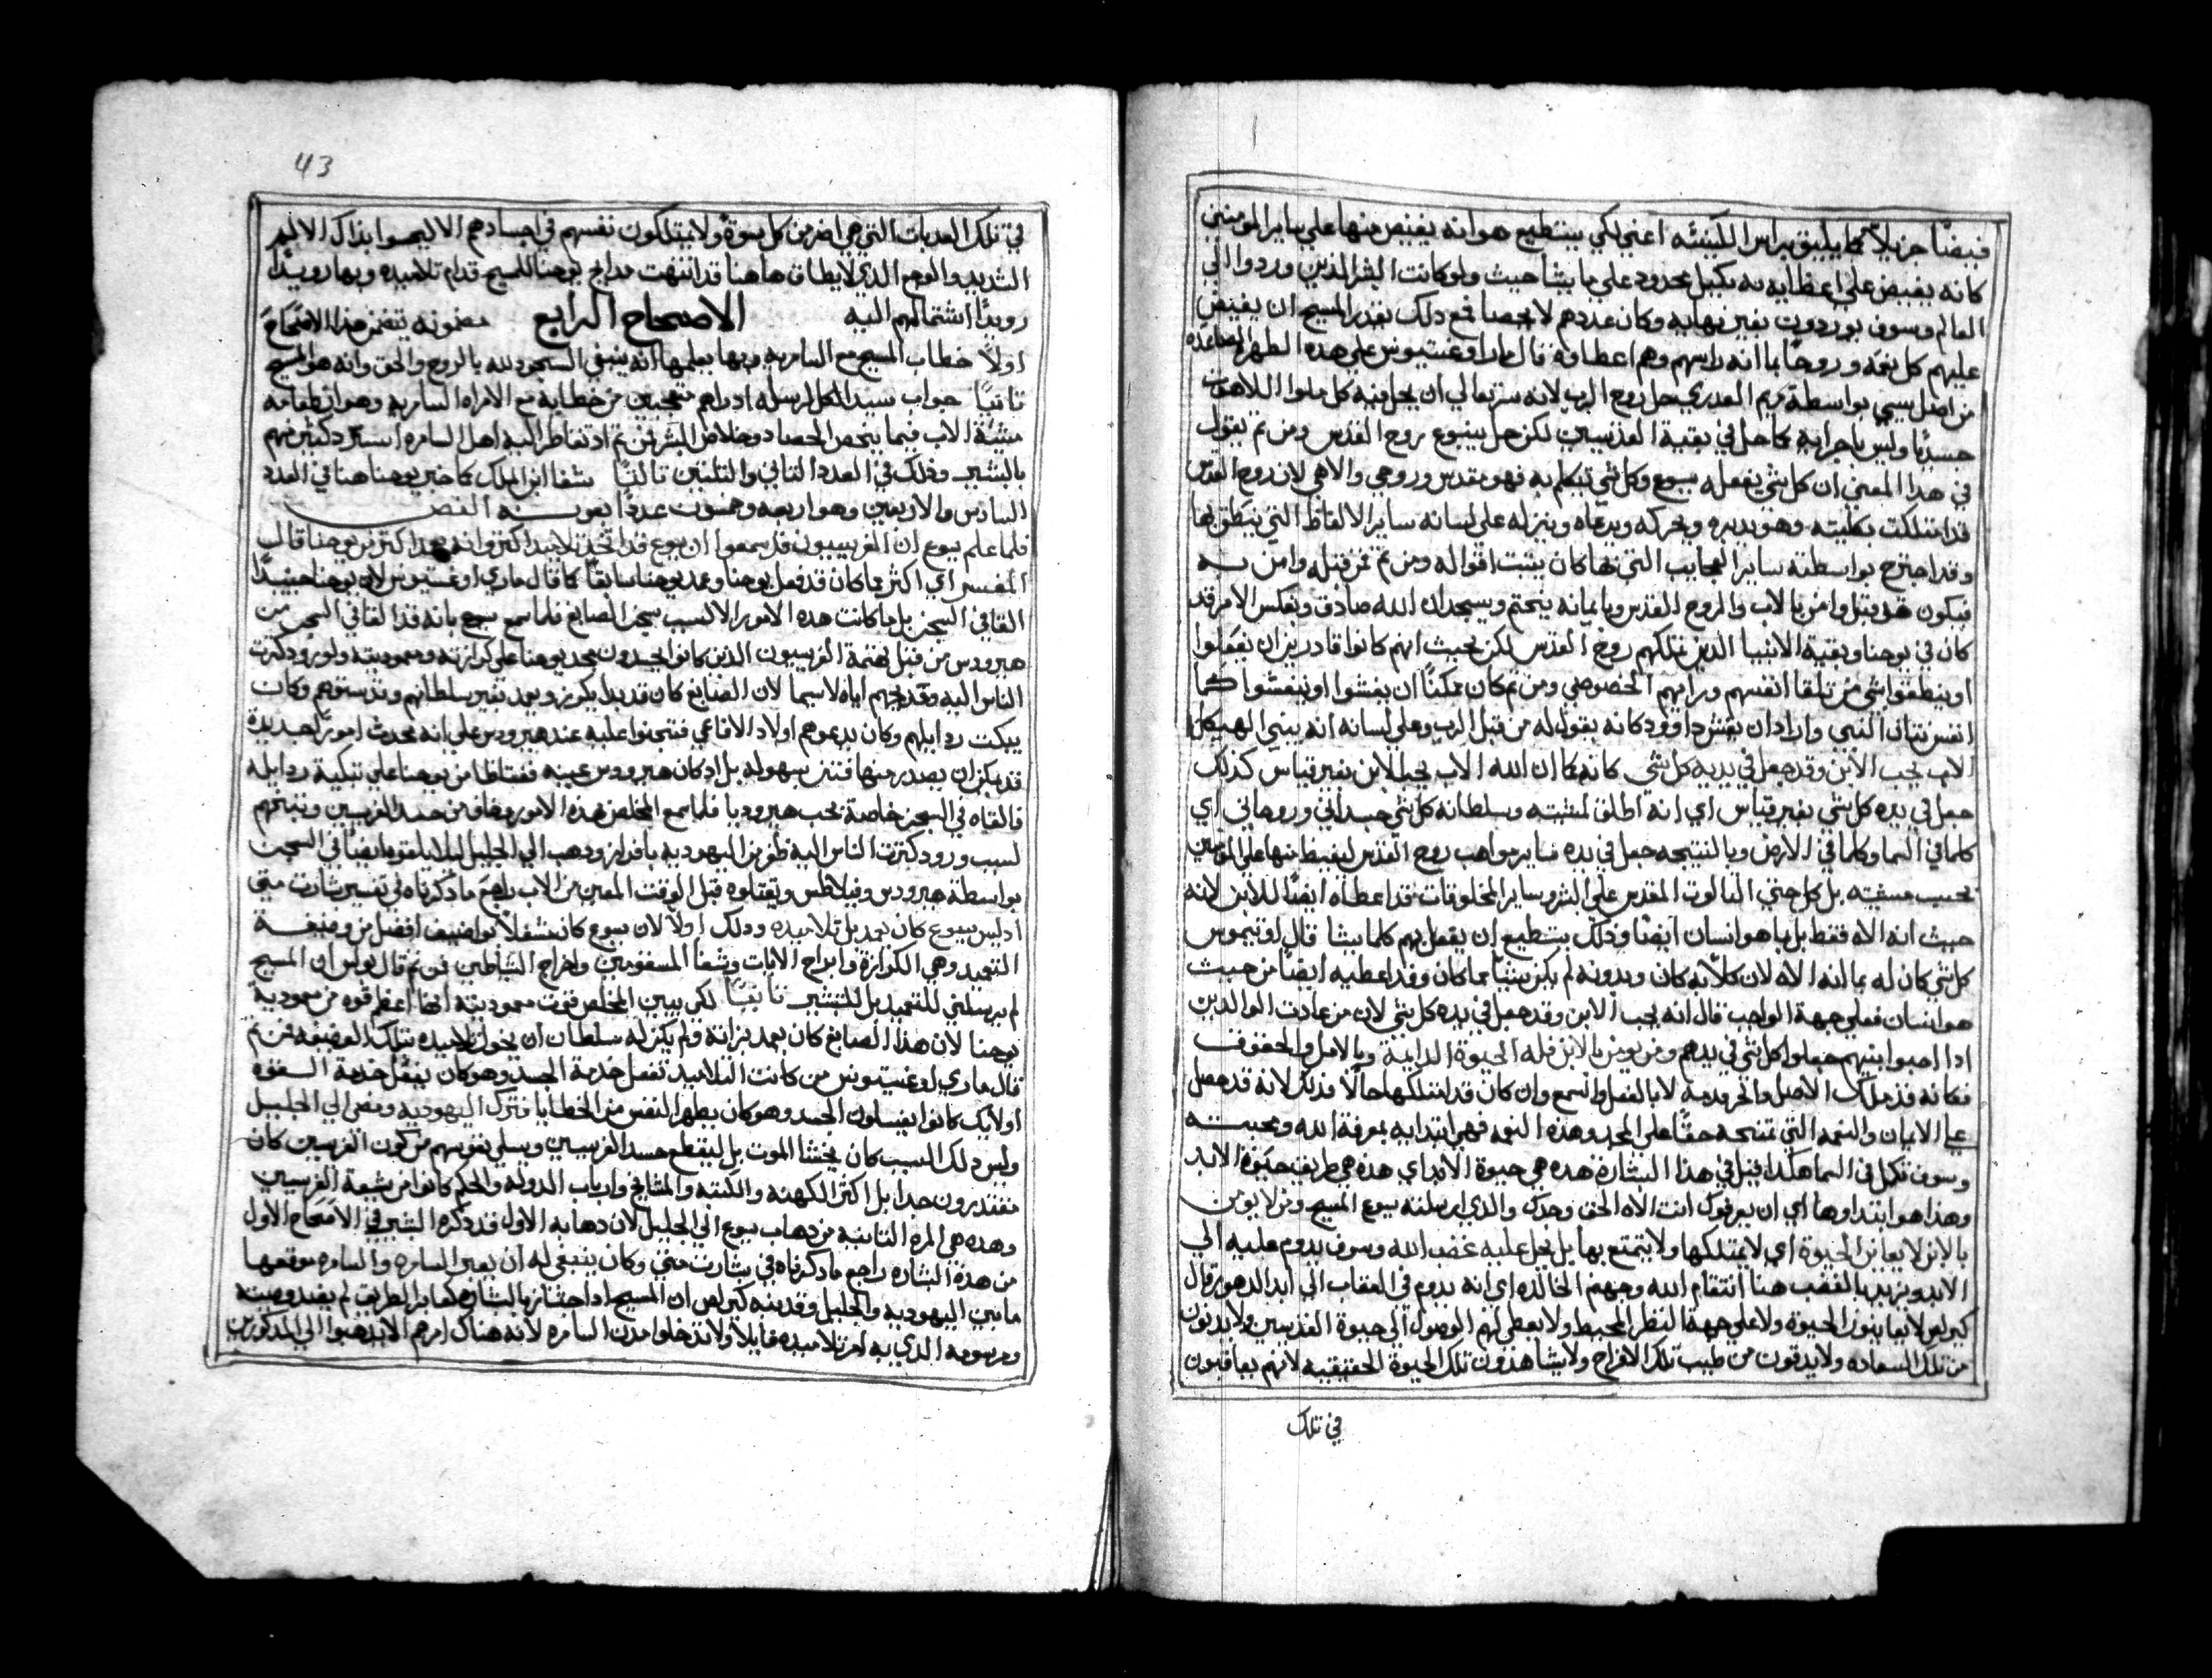 فيضًا جزيلاً كما يليق براس الكنيسه اعني لكي يستطيع هو انه يفيض منها على ساير المومنين
كانه يفيض على اعضايه بكيل محدود على ما يشا حيث ولو كانت البشر الذين وردوا الى
العالم وسوف يوردون بغير نهايه وكان عددهم لا يحصا فمع دلك يقدر المسيح ان يفيض
عليهم كل نعمه وروحًا بما انه راسهم وهم اعضاوه قال مارا وغستينوس على هده الطهر الصاعده
من اصل يسي بواسطة مريم العدري حل روح الرب لانه سر تعالي ان يحل فيه كل ملوا اللاهوت
جسديًا وليس باجزايه كما حل في بقية القديسين لكن حل ينبوع روح القدس ومن تم نقول
في هدا المعني ان كل شي يفعله يسوع وكل شي يتكلم به فهو مقدس وروحي والاهي لان روح القدس
قد امتلكت بكليته وهو يدبره ويحركه ويرعاه وينزله على لسانه ساير الالفاظ التي ينطق بها
وقد اجترح بواسطته ساير العجايب التي بها كان يثبت اقواله ومن تم فمن قبله وامن به
فيكون قد قبل وامن بالاب والروح القدس وبايمانه يختم ويسجد ان الله صادق وبعكس الامر قد
كان في يوحنا وبقية الانبيا الدين يمتلكهم روح القدس لكن بحيث انهم كانوا قادرين ان يفعلوا
او ينطقوا بشي من تلقا انفسهم ورايهم الخصوصي ومن تم كان ممكنًا ان يغشوا او ينغشوا كما
انغش ناتان النبي واراد ان يغش داوود كانه يقول له من قبل الرب وعلى لسانه انه يبني الهيكل
الاب يحب الابن وقد جعل في يديه كل شي كانه كما ان الله الاب يحب الابن بغير قياس كذلك
جعل في يده كل شي بغير قياس اي انه اطلق لمشيته وسلطانه كل شي جسداني وروحاني اي
كلما في السما وكلما في الارض وبالنتيجه جعل في يده ساير مواهب روح القدس ليفيض منها على المومنين
بحسب مسرته بل كل حتي التالوت المقدس على البشر وساير المخلوقات قد اعطاه ايضًا للابن لانه
حيث انه الاه فقط بل بما هو انسان ايضًا وذلك يستطيع ان يفعل بهم كلما يشا قال اوتيموس
كل شي كان له بما انه الاه لان كلا به كان وبدونه لم يكن شيئًا مما كان وقد اعطيه ايضًا من حيث
هو انسان فعلي جهة الواجب قال انه يحب الابن وقد جعل في يده كل شي لان من عادت الوالدين
ادا احبوا ابنيهم جعلوا كل شي في يدهم ومن يومن بالابن فله الحيوة الدايمة وبالامل والحقوق
فكانه قد ملك الاصل والجرثومة لا بالفعل والتمتع وان كان قد امتلكها حالًا فذلك لانه قد حصل
على الايمان والنعمه التي تمنحه حقًا على المجد وهذه النعمه فهي ابتدا به بمعرفة الله ومحبته
وسوف تكمل في السما هكدا قيل في هذا البشارة هده هي حيوة الابد اي هده هي طريق حيوة الابد
وهدا هو ابتداوها اي ان يعرفوك انت الاه الحق وحدك والذي ارسلته يسوع المسيح ومن لا يومن
بالابن لا يعاين الحيوة اي لا يمتلكها ولا يتمتع بها بل يحل عليه غضب الله وسوف يدوم عليه الي
الابد ويريد بالغضب هنا انتقام الله وجهنم الخالده اي انه يدوم في العقاب الي ابد الدهور قال
كيرلس لا يعاينون الحيوة ولا على جهة النظر المحيط ولا يعطي لهم الوصول الي حيوة القديسين ولا يدنون
من تلك السعاده ولا يدوقون من طيب تلك الافراح ولا يشاهدون تلك الحيوة الحقيقيه لانهم يعاقبون
في تلك
43
في تلك العدابات التي هي اضر من كل موتة ولا يمتلكون نفسهم في اجسادهم الا ليحسوا بذاك الالم
الشديد والوجع الذي لا يطاق هاهنا قد انتهت مدايح يوحنا للمسيح قدام تلاميده وبها رويدًا
رويدًا اشتمالهم اليه الاصحاح الرابع مضمونه يتضمن هدا الاصحاح
اولًا خطاب المسيح مع السامريه وبها يعلمها انه ينبغي السجود لله بالروح والحق وانه هو المسيح
تانيًا جواب سيد الكل لرسله اد راهم متعجبين من خطابه مع الامراه السامريه وهو ان طعامه
مشيّة الاب فيما يخص الحصاد وخلاص البشر فمن تم اد تقاطر اليه اهل السامره استرد كثير منهم
بالبشير ودلك في العدد التاني والتلتين تالتًا شفا ابن الملك كما خبر يوحنا هنا في العدد
السادس والاربعين وهو اربعه وخمسون عددًا بعونه النص
فلما علم يسوع ان الفريسيون قد سمعوا ان يسوع قد اتخد تلاميدا اكتر وانه يعمد اكتر من يوحنا قال
المفسر اي اكتر مما كان قد فعل يوحنا وعمد يوحنا سابقًا كما قال ماري اوغستينوس لان يوحنا حينيدًا
القا في السجن بل ما كانت هده الامور الا لسبب سجن الصابغ فلما سمع يسوع بانه قد القا في السجن من
هيرودس من قبل نميمة الفريسيون الدين كانوا يحسدون مجد يوحنا على كرازته ومعموديته ولورود كترت
الناس اليه ومديحهم اياه لاسيما لان الصابغ كان قد بدا يكرز ويعمد بغير سلطانهم ودستورهم وكان
يبكت ردايلهم وكان يدعوهم اولاد الافاعي فتجنوا عليه عند هيرودس على انه يحدث امورًا جديدة
قد يمكن ان يصدر منها فتن بسهوله بل اد كان هيرودس عينه مغتاظًا من يوحنا على تبكيته ردايله
فالقاه في السجن خاصة بحب هيروديا فلما سمع المخلص هذه الامور وخاف من حسد الفريسيين ونميمتهم
لسبب ورود كترت الناس اليه طفر من اليهوديه بافراز ودهب الي الجليل ليلا يلقوه ايضًا في السجن
بواسطة هيرودس وفيلاطس ويقتلوه قبل الوقت المعين من الاب راجع ما دكرناه في تفسير بشارت متي
اد ليس يسوع كان يعمد بل تلاميده ودلك اولًا لان يسوع كان مشغلًا بواضيف افضل من وضيفة
التعميد وهي الكرازة وابراج الايات وشفا المسقومين واخراج الشياطين فمن تم قال بولس ان المسيح
لم يرسلني للتعميد بل للتبشير تانيًا لكي يبين المخلص قوت معموديته انها اعظم قوه من معمودية
يوحنا لان هدا الصابغ كان يعمد بداته ولم يكن له سلطان ان يخول تلاميده بتلك الوضيفه فمن تم
قال ماري اوغستينوس من كانت التلاميد تفعل خدمة الجسد وهو كان يفعل خدمة السقوه
اولايك كانوا يغسلون الجسد وهو كان يطهر النفس من الخطايا فترك اليهوديه ومضي الي الجليل
وليس دلك لسبب كان يخشا الموت بل ليقطع حسد الفريسيين ويسلي نفوسهم من كون الفريسيين كان
مقتدرون جدا بل اكتر الكهنه والكتبه والمشايخ وارباب الدوله والحكم كانوا من شيعة الفريسيين
وهده هي المره التانيه من دهاب يسوع الي الجليل لان دهابه الاول قد دكره البشير في الاصحاح الاول
من هدة البشاره راجع ما دكرناه في بشارت متي وكان ينبغي له ان يعبر السامره والسامره موقعها
ما بين اليهوديه والجليل وقد ينبه كيرلس ان المسيح ادا اجتاز بالسامره كعابر الطريق لم يفند وصيته
ومرسومه الذي به امر تلاميده قايلاً ولا تدخلوا مدن السامره لانه هناك امرهم الا يدهبوا الي المدكورين